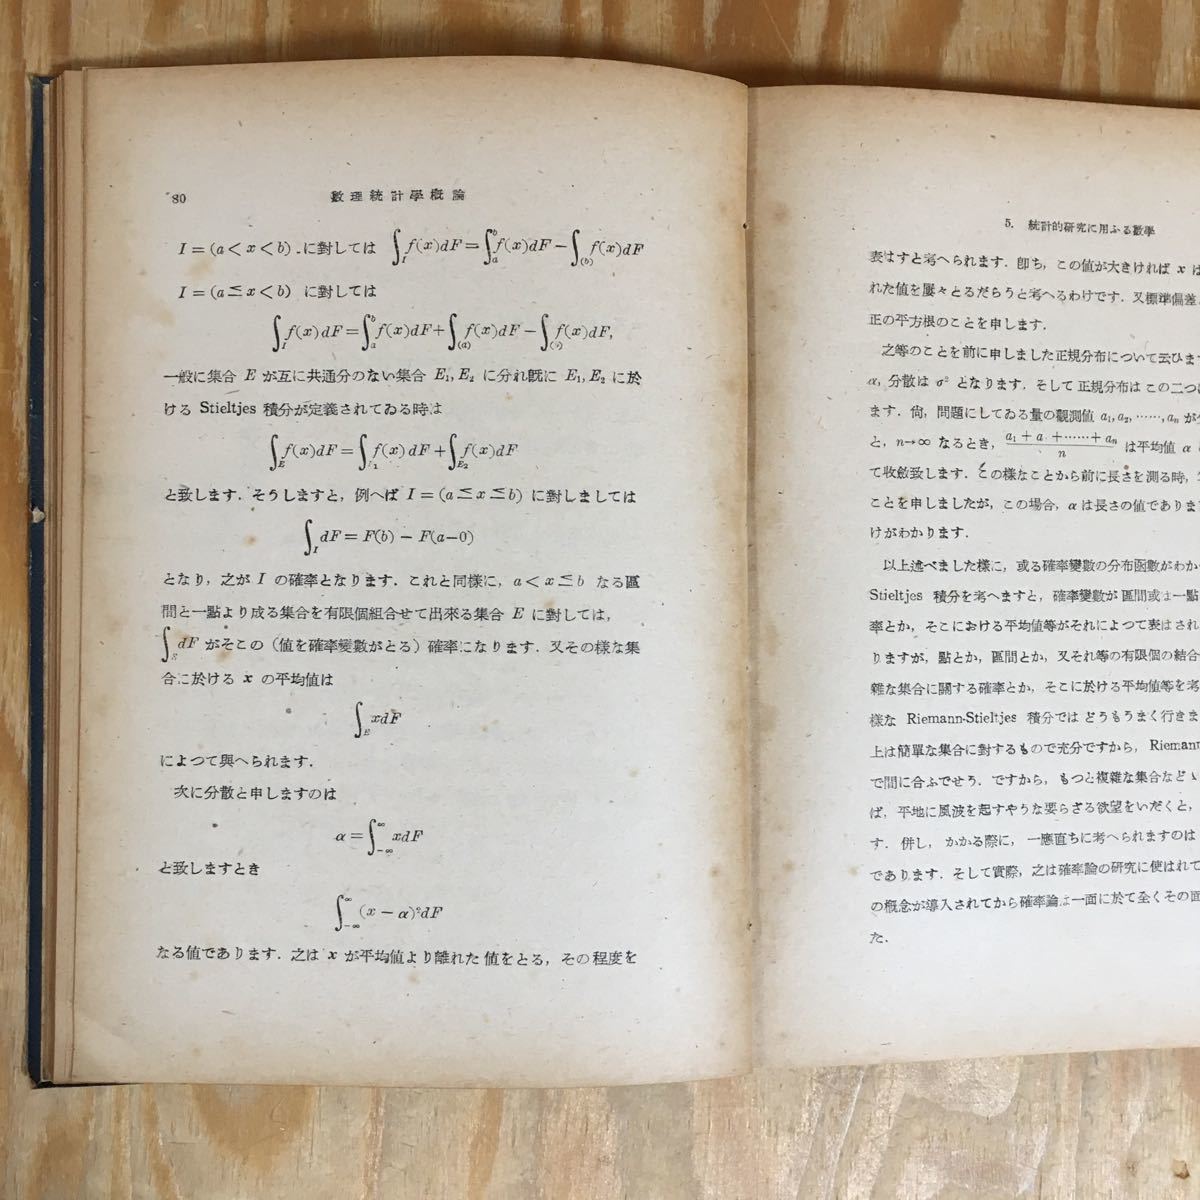 80
數理統計學概論
I = (a < x < b) に對しては ∫_I f(x)dF = ∫_a^b f(x)dF − ∫_(b) f(x)dF
I = (a ≦ x < b) に對しては
∫_I f(x)dF = ∫_a^b f(x)dF + ∫_(a) f(x)dF − ∫_(b) f(x)dF,
一般に集合 E が互に共通分のない集合 E₁, E₂ に分れ旣に E₁, E₂ に於
ける Stieltjes 積分が定義されてゐる時は
∫_E f(x)dF = ∫_E₁ f(x)dF + ∫_E₂ f(x)dF
と致します．そうしますと，例へば I = (a ≦ x ≦ b) に對しましては
∫_I dF = F(b) − F(a−0)
となり，之が I の確率となります．これと同樣に，a < x ≦ b なる區
間と一點より成る集合を有限個組合せて出來る集合 E に對しては，
∫_E dF がそこの（値を確率變數がとる）確率になります．又その樣な集
合に於ける x の平均値は
∫_E xdF
によつて與へられます．
次に分散と申しますのは
α = ∫_−∞^∞ xdF
と致しますとき
∫_−∞^∞ (x − α)²dF
なる値であります．之は x が平均値より離れた値をとる，その程度を
5. 統計的研究に用ふる數學
表はすと考へられます．卽ち，この値が大きければ x は
れた値を屢々とるだらうと考へるわけです．又標準偏差
正の平方根のことを申します．
之等のことを前に申しました正規分布について云ひます
α, 分散は σ² となります．そして正規分布はこの二つ
ます．尙，問題にしてゐる量の觀測値 a₁, a₂, ……, aₙ が
と，n→∞ なるとき，(a₁ + a + …… + aₙ)/n は平均値 α
て收斂致します．この樣なことから前に長さを測る時，
ことを申しましたが，この場合，α は長さの値であります
けがわかります．
以上述べました樣に，或る確率變數の分布函數がわか
Stieltjes 積分を考へますと，確率變數が區間或は一點
率とか，そこにおける平均値等がそれによつて表はされ
りますが，點とか，區間とか，又それ等の有限個の結合
雜な集合に關する確率とか，そこに於ける平均値等を考
樣な Riemann-Stieltjes 積分ではどうもうまく行きま
上は簡單な集合に對するもので充分ですから，Riemann
で間に合ふでせう．ですから，もつと複雜な集合など
ば，平地に風波を起すやうな要らざる欲望をいだくと，
す．併し，かかる際に，一應直ちに考へられますのは
であります．そして實際，之は確率論の研究に使はれて
の槪念が導入されてから確率論は一面に於て全くその面
た．